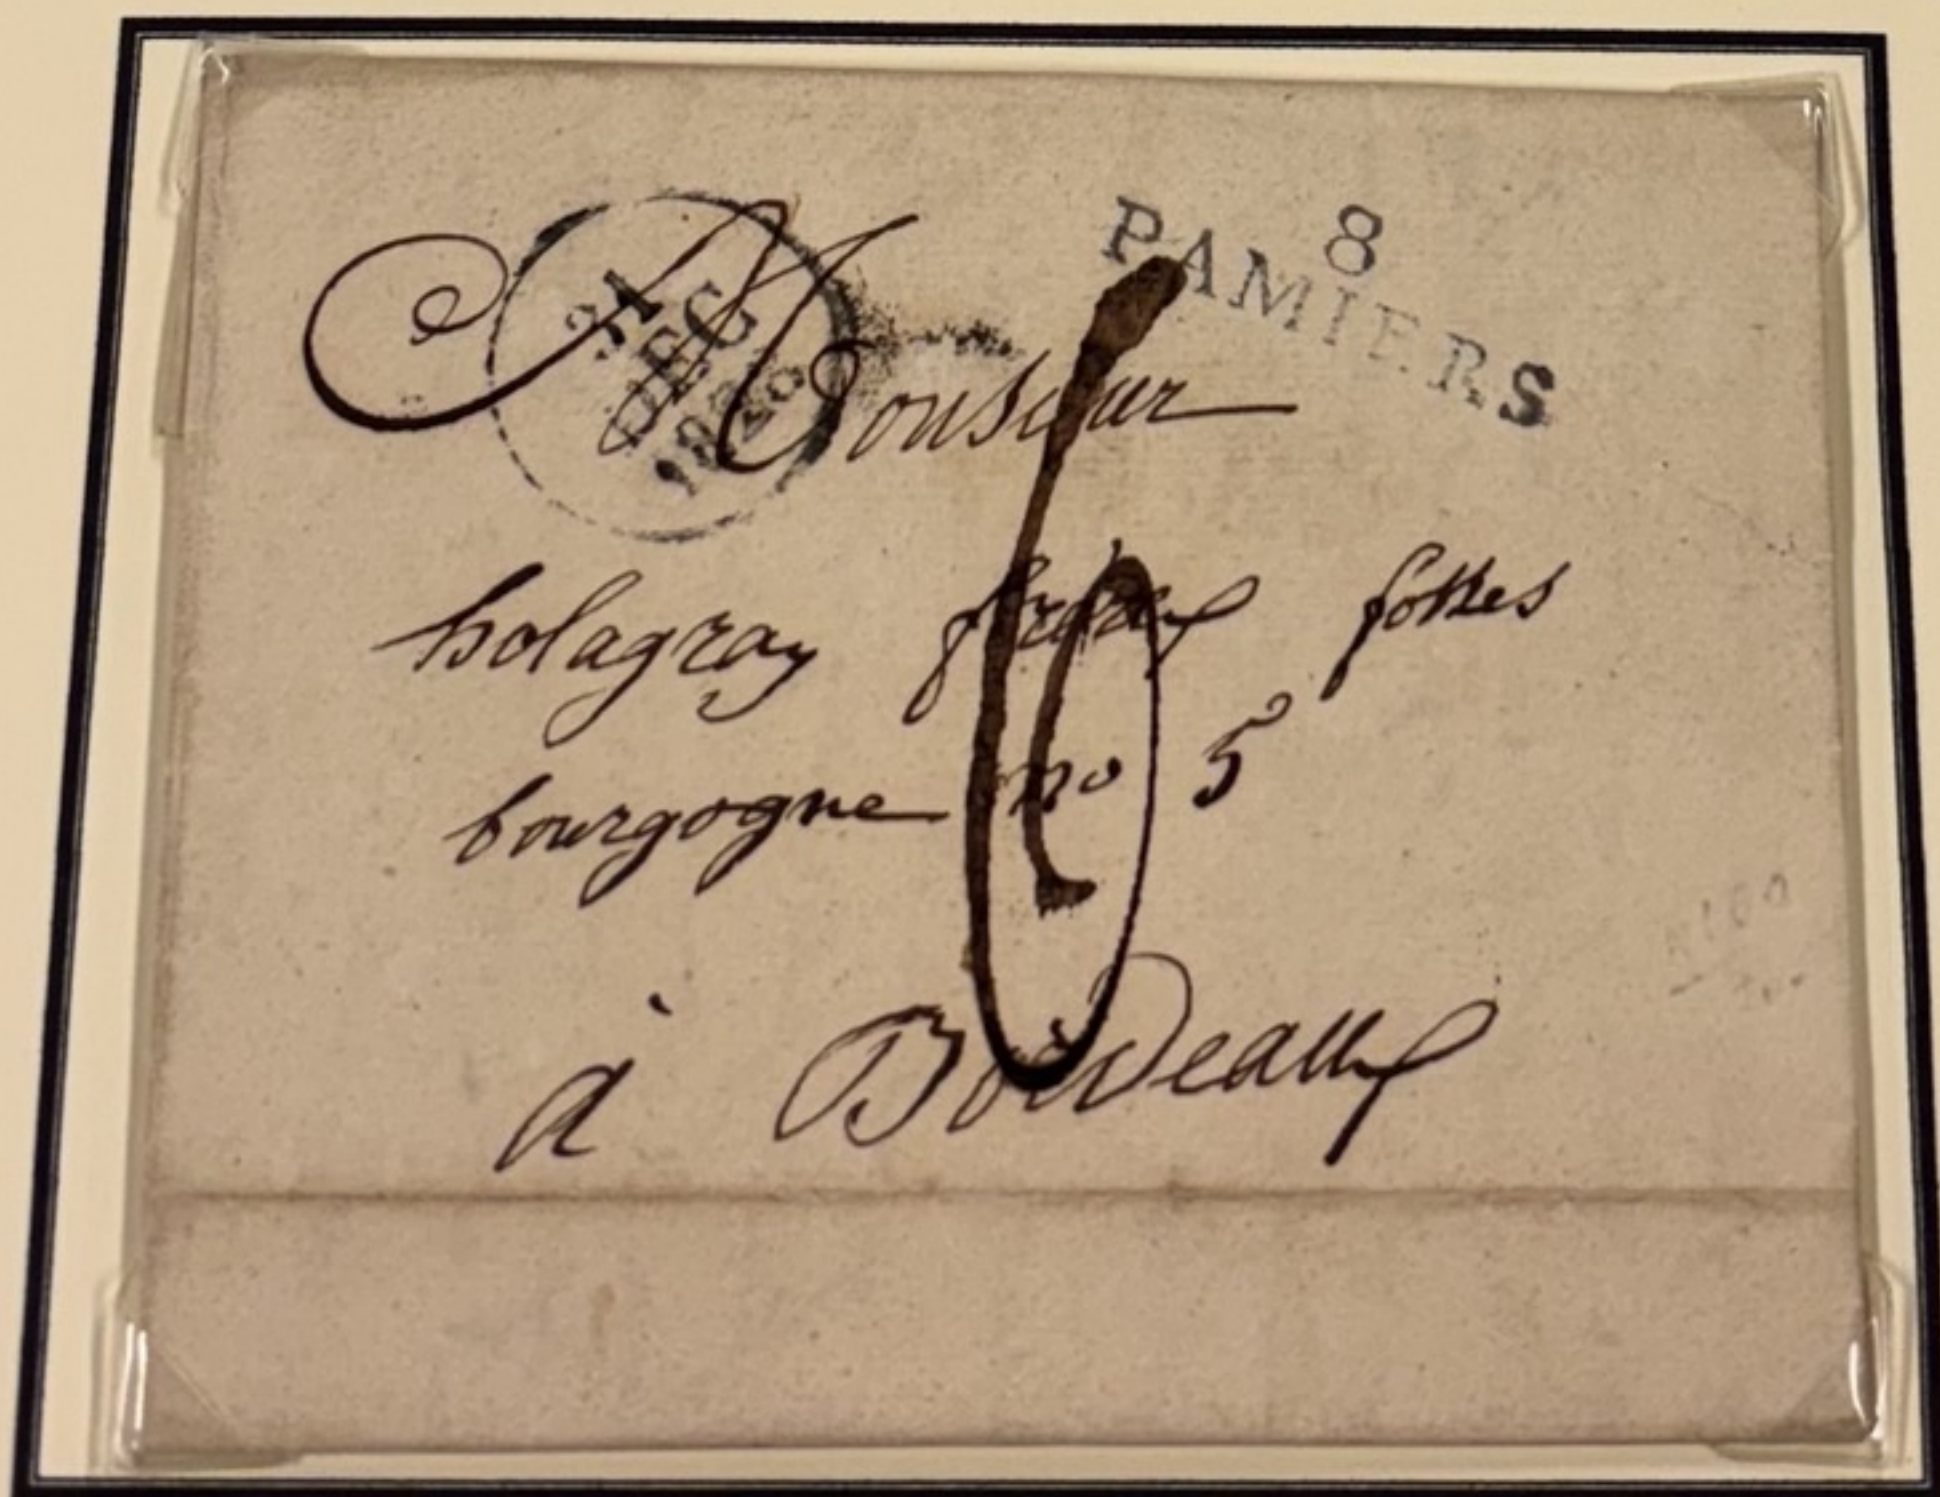 8
PAMIERS
31
DEC
1828
Monsieur
holagray frères fossés
bourgogne no 5
à Bordeaux